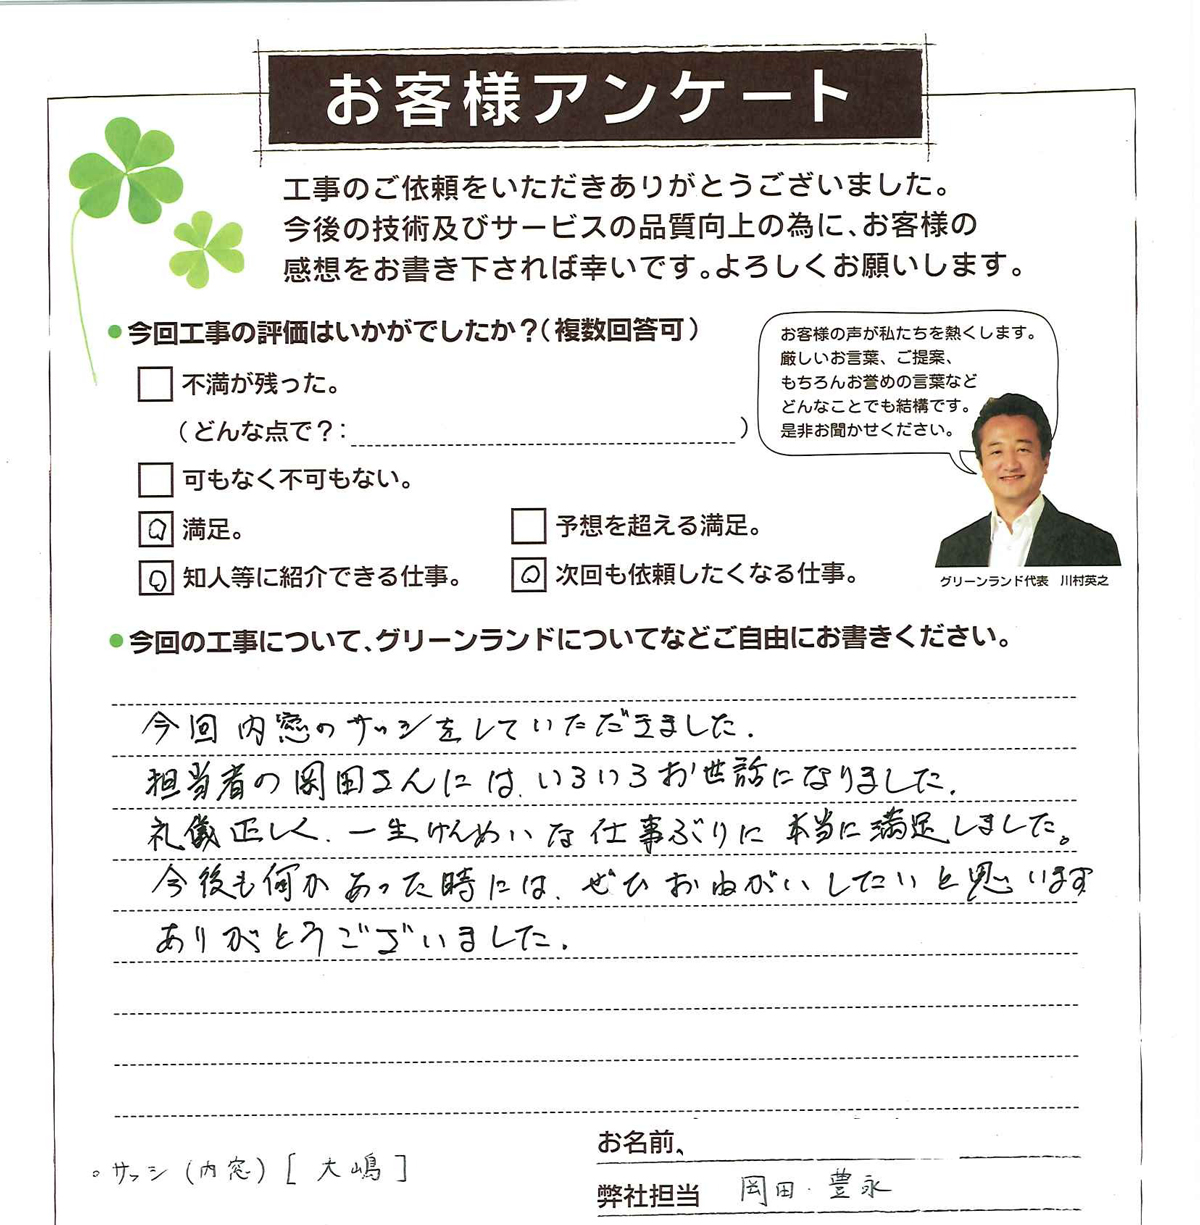 お客様アンケート
工事のご依頼をいただきありがとうございました。
今後の技術及びサービスの品質向上の為に、お客様の
感想をお書き下されば幸いです。よろしくお願いします。
●今回工事の評価はいかがでしたか?(複数回答可)
お客様の声が私たちを熱くします。
厳しいお言葉、ご提案、
もちろんお誉めの言葉など
どんなことでも結構です。
是非お聞かせください。
不満が残った。
(どんな点で?: )
可もなく不可もない。
満足。
予想を超える満足。
知人等に紹介できる仕事。
次回も依頼したくなる仕事。
グリーンランド代表 川村英之
●今回の工事について、グリーンランドについてなどご自由にお書きください。
今回内窓のサッシをしていただきました.
担当者の岡田さんには、いろいろお世話になりました.
礼儀正しく、一生けんめいな仕事ぶりに本当に満足しました。
今後も何かあった時には、ぜひおねがいしたいと思います
ありがとうございました.
お名前、
。サッシ(内窓)[大嶋]
弊社担当 岡田・豊永